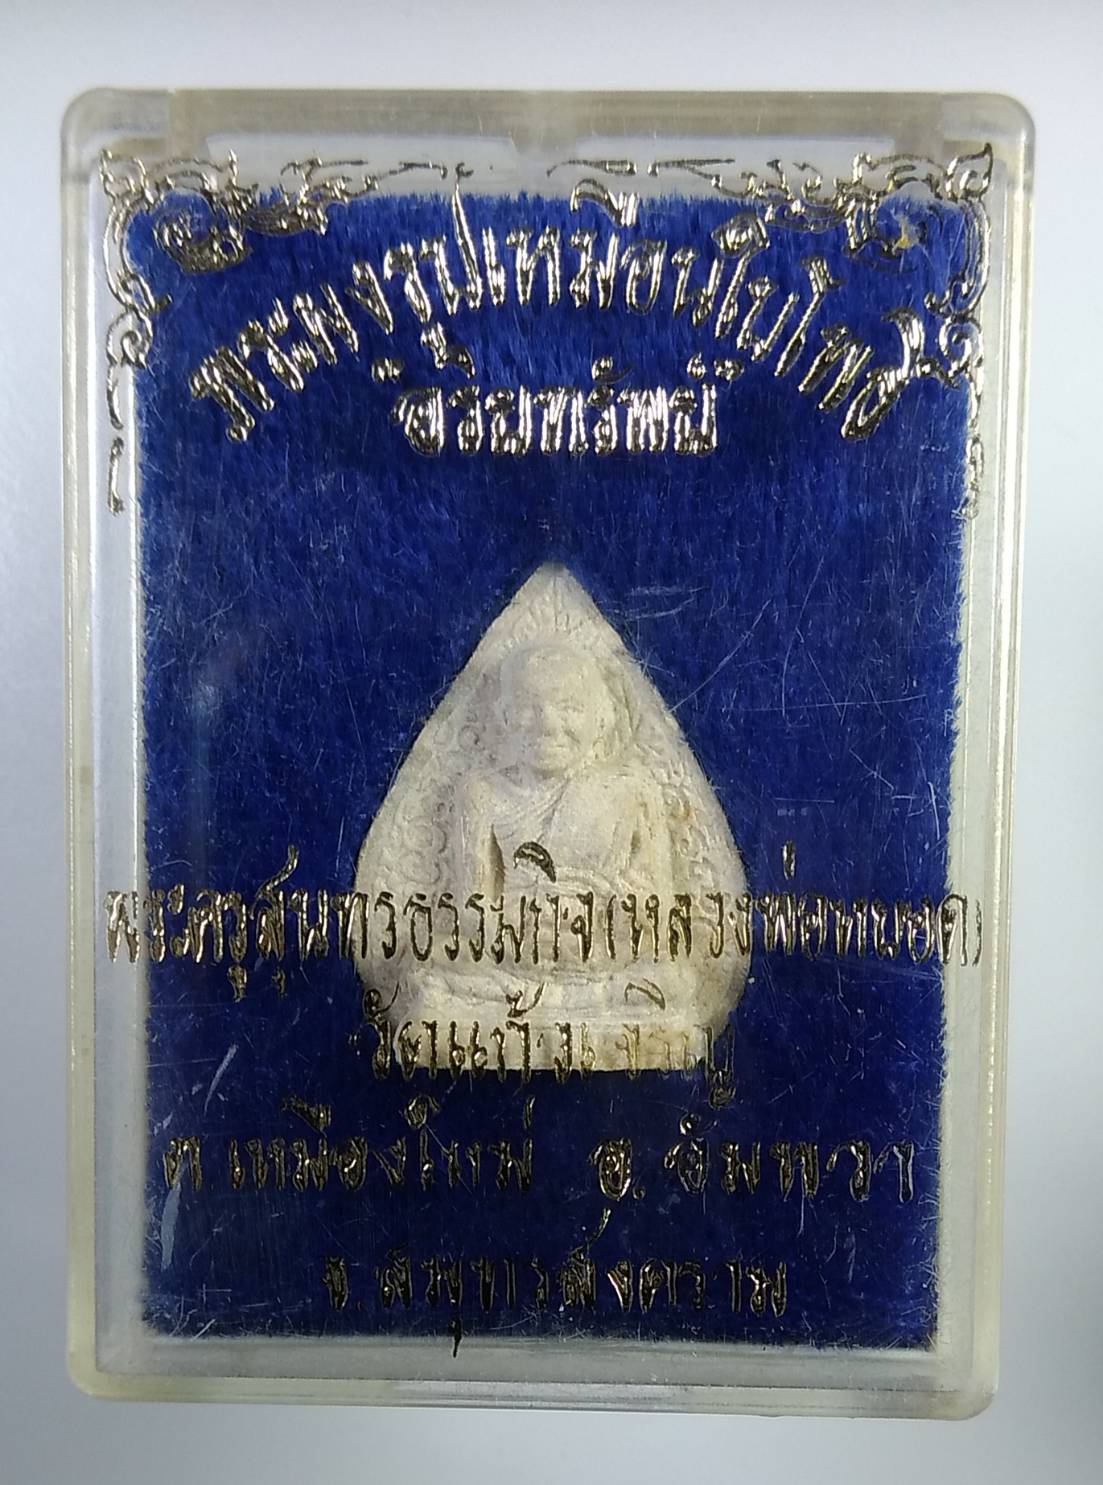 พระผงรูปเหมือนใบโพธิ์
อวยทรัพย์
พระครูสุนทรธรรมกิจ(หลวงพ่อหยอด)
วัดแก้วเจริญ
ต.เหมืองใหม่ อ.อัมพวา
จ.สมุทรสงคราม